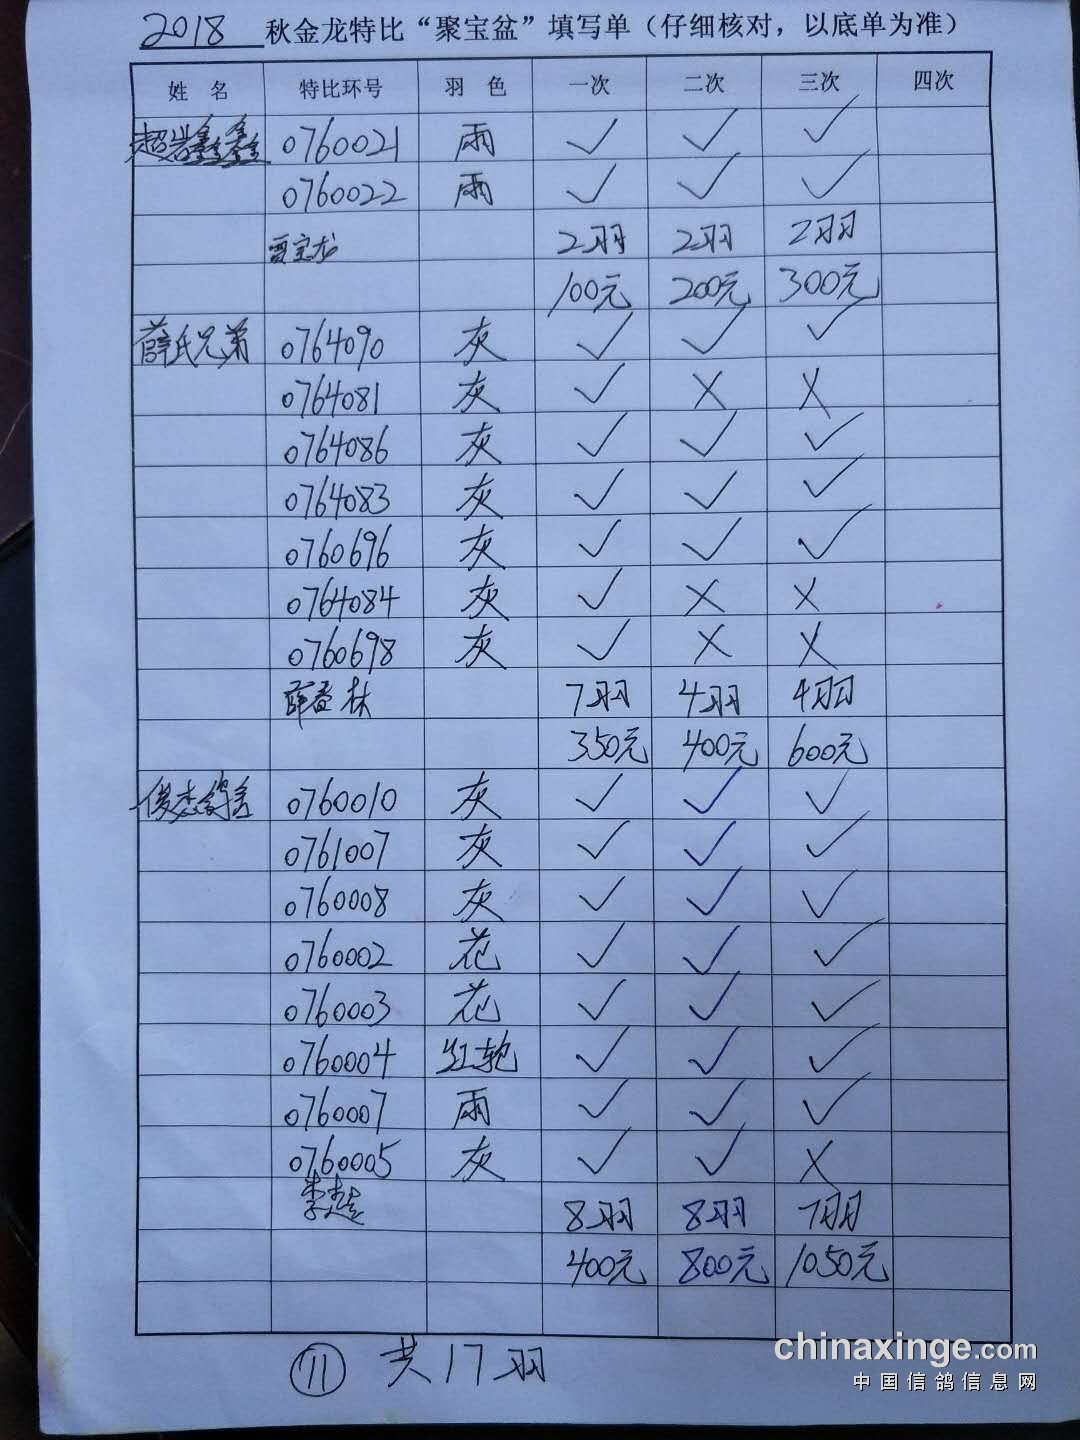 2018 秋金龙特比“聚宝盆”填写单（仔细核对，以底单为准）
姓 名 特比环号 羽 色 一次 二次 三次 四次
超岩鑫鑫 0760021 雨 ✓ ✓ ✓
0760022 雨 ✓ ✓ ✓
贾宝龙 2羽 2羽 2羽
100元 200元 300元
薛氏兄弟 0764090 灰 ✓ ✓ ✓
0764081 灰 ✓ X X
0764086 灰 ✓ ✓ ✓
0764083 灰 ✓ ✓ ✓
0760696 灰 ✓ ✓ ✓
0764084 灰 ✓ X X
0760698 灰 ✓ X X
薛春林 7羽 4羽 4羽
350元 400元 600元
俊杰鸽舍 0760010 灰 ✓ ✓ ✓
0761007 灰 ✓ ✓ ✓
0760008 灰 ✓ ✓ ✓
0760002 花 ✓ ✓ ✓
0760003 花 ✓ ✓ ✓
0760004 红轮 ✓ ✓ ✓
0760007 雨 ✓ ✓ ✓
0760005 灰 ✓ ✓ X
李超 8羽 8羽 7羽
400元 800元 1050元
11 共17羽
chinaxinge.com
中国信鸽信息网